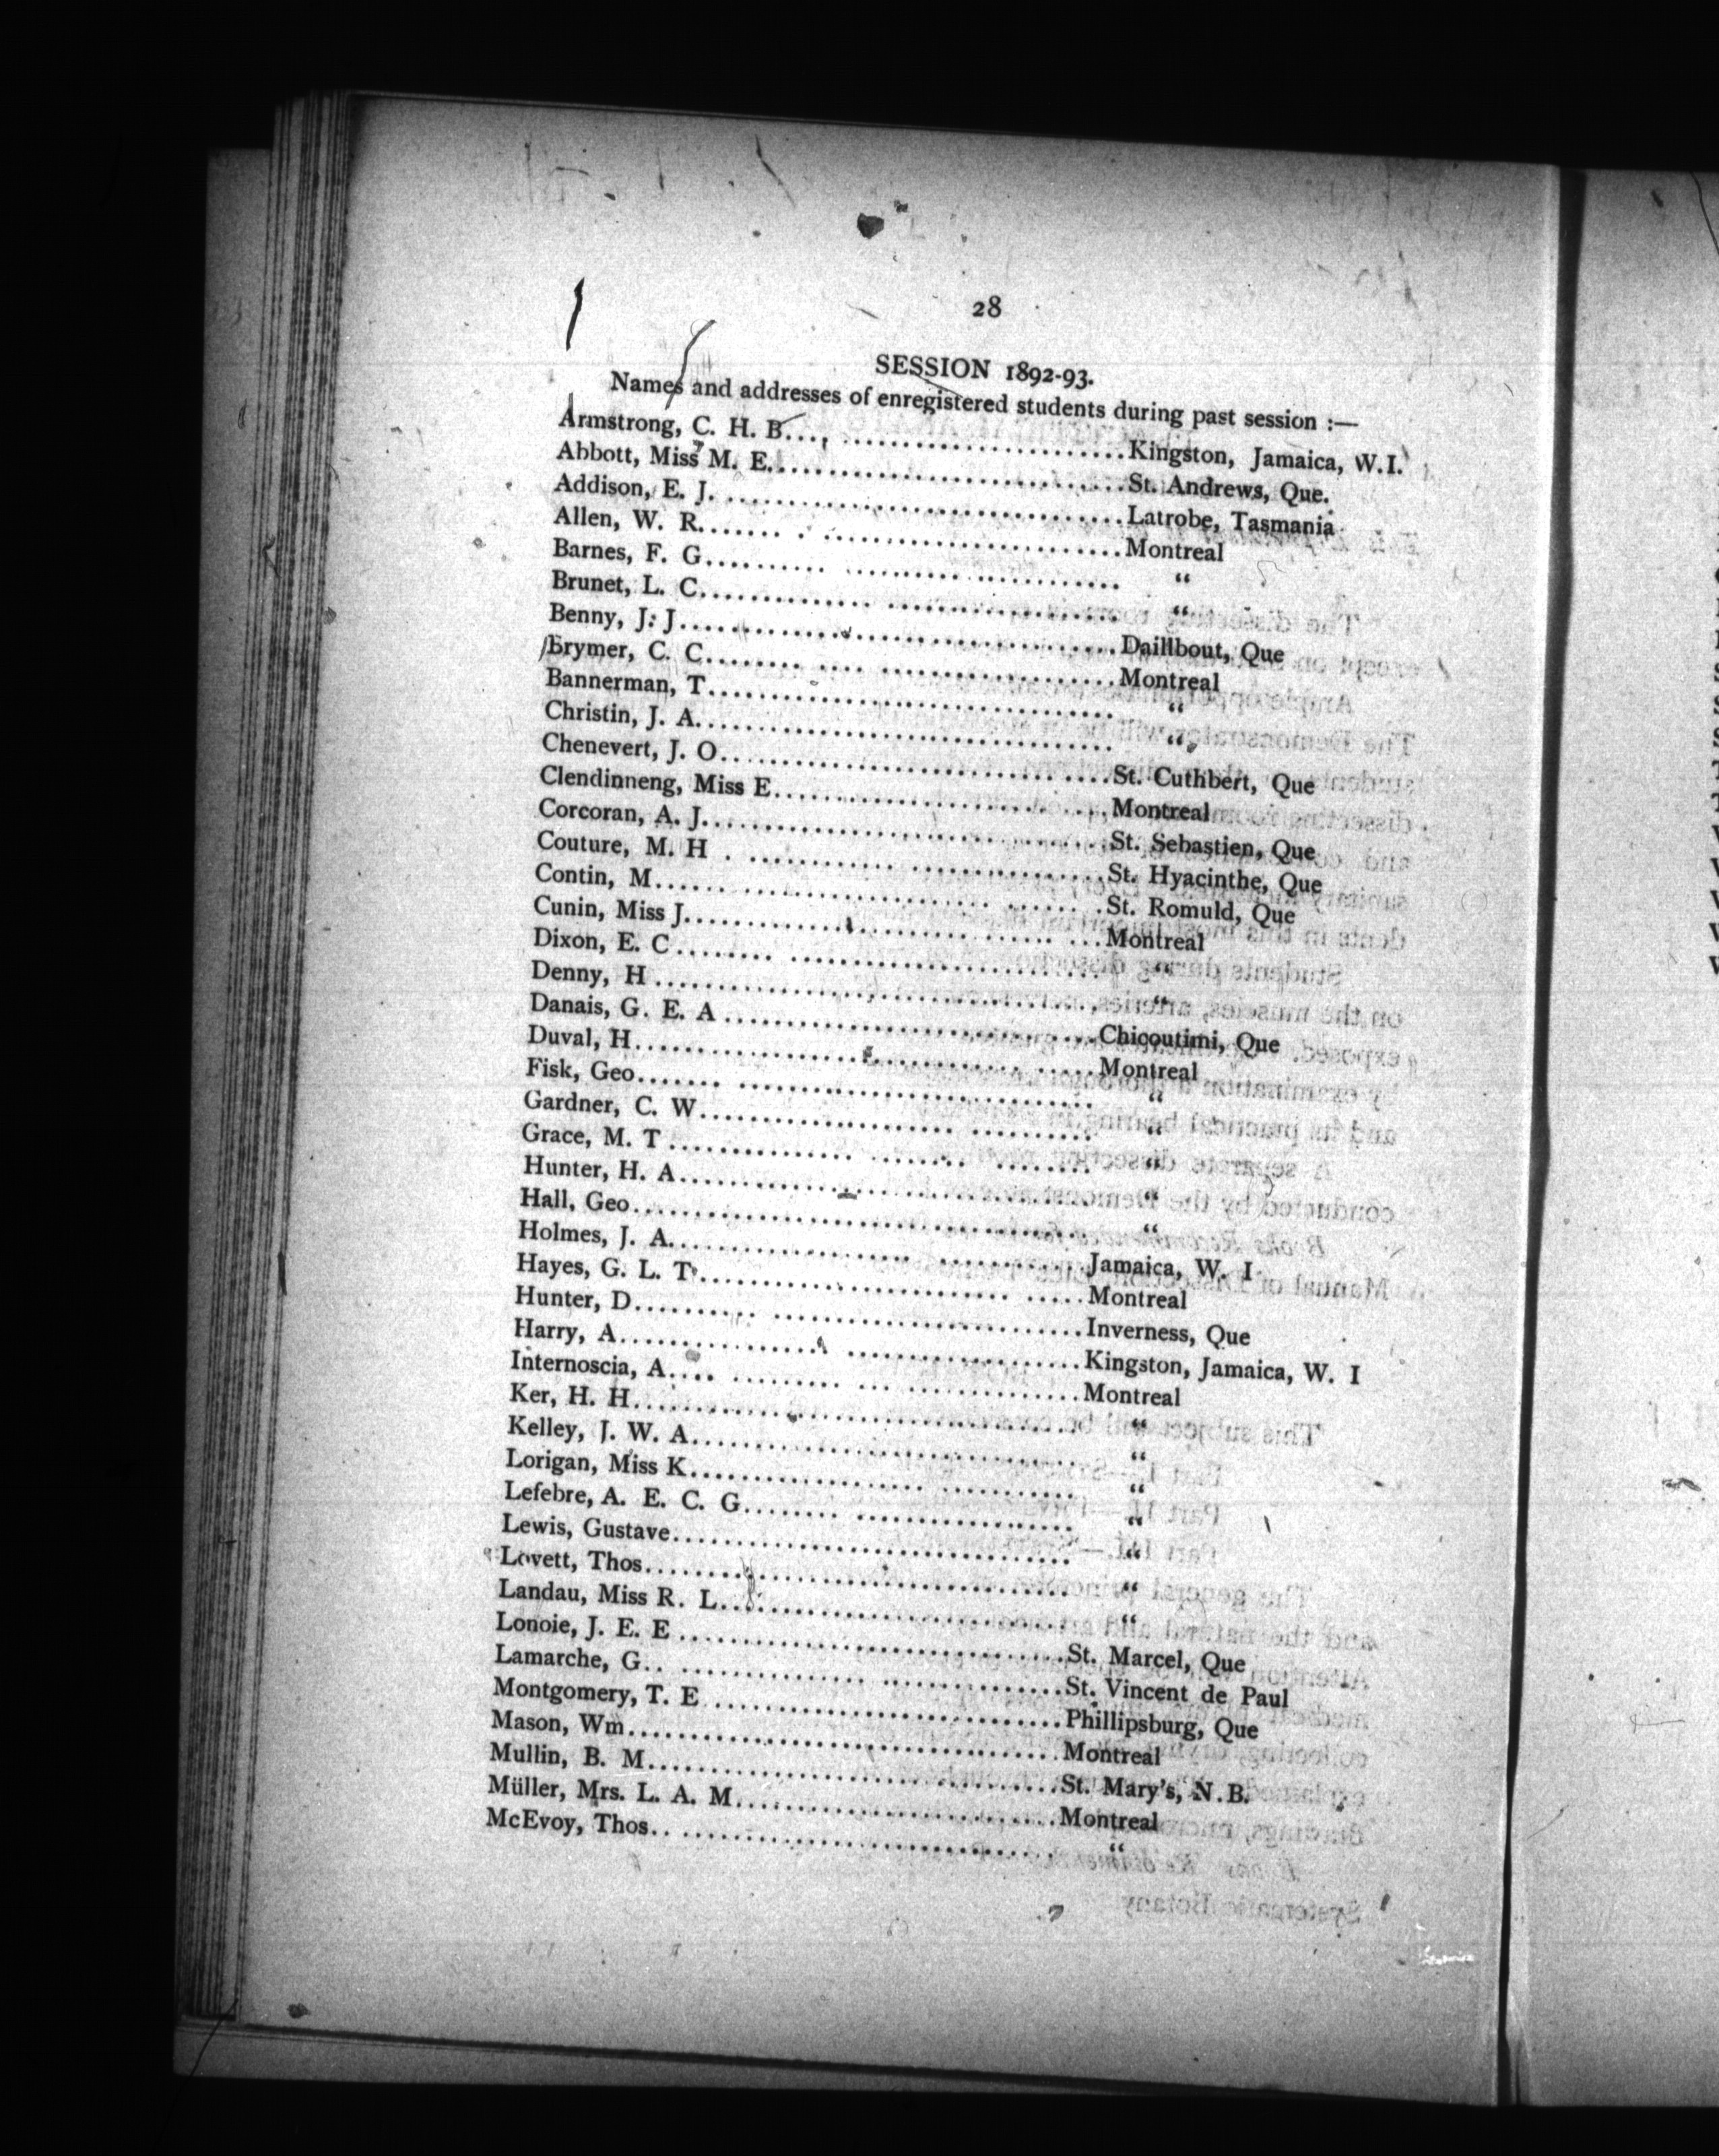 28
SESSION 1892-93.
Names and addresses of enregistered students during past session :—
Armstrong, C. H. B.... ........................Kingston, Jamaica, W.I.
Abbott, Miss M. E..............................St. Andrews, Que.
Addison, E. J. ................................Latrobe, Tasmania
Allen, W. R....... . ..........................Montreal
Barnes, F. G.......... ......... ............ “
Brunet, L. C.............. .................. “
Benny, J. J...................................Daillbout, Que
Brymer, C. C........ .... ....................Montreal
Bannerman, T.................................. “
Christin, J. A................................ “
Chenevert, J. O........................... ....St. Cuthbert, Que
Clendinneng, Miss E...........................Montreal
Corcoran, A. J................................St. Sebastien, Que
Couture, M. H . ............ .................St. Hyacinthe, Que
Contin, M...... ..................... ...... .St. Romuld, Que
Cunin, Miss J...................... ...... ...Montreal
Dixon, E. C ......... ........................
Denny, H ..................................... “
Danais, G. E. A ..............................Chicoutimi, Que
Duval, H............................... .....Montreal
Fisk, Geo....... ............................. “
Gardner, C. W..................... ........... “
Grace, M. T ............... ........ ......... “
Hunter, H. A.................................. “
Hall, Geo..................................... “
Holmes, J. A.................... .............Jamaica, W. I
Hayes, G. L. T.......................... .....Montreal
Hunter, D.......... ..........................Inverness, Que
Harry, A................. ....................Kingston, Jamaica, W. I
Internoscia, A.... ......... ... .............Montreal
Ker, H. H..................................... “
Kelley, J. W. A............................... “
Lorigan, Miss K................... ........... “
Lefebre, A. E. C. G........ .................. “
Lewis, Gustave................................ “
Lovett, Thos.................................. “
Landau, Miss R. L............................. “
Lonoie, J. E. E ..............................St. Marcel, Que
Lamarche, G.. ............... ................St. Vincent de Paul
Montgomery, T. E .............................Phillipsburg, Que
Mason, Wm.....................................Montreal
Mullin, B. M..................................St. Mary's, N.B.
Müller, Mrs. L. A. M..........................Montreal
McEvoy, Thos.. ............................... “